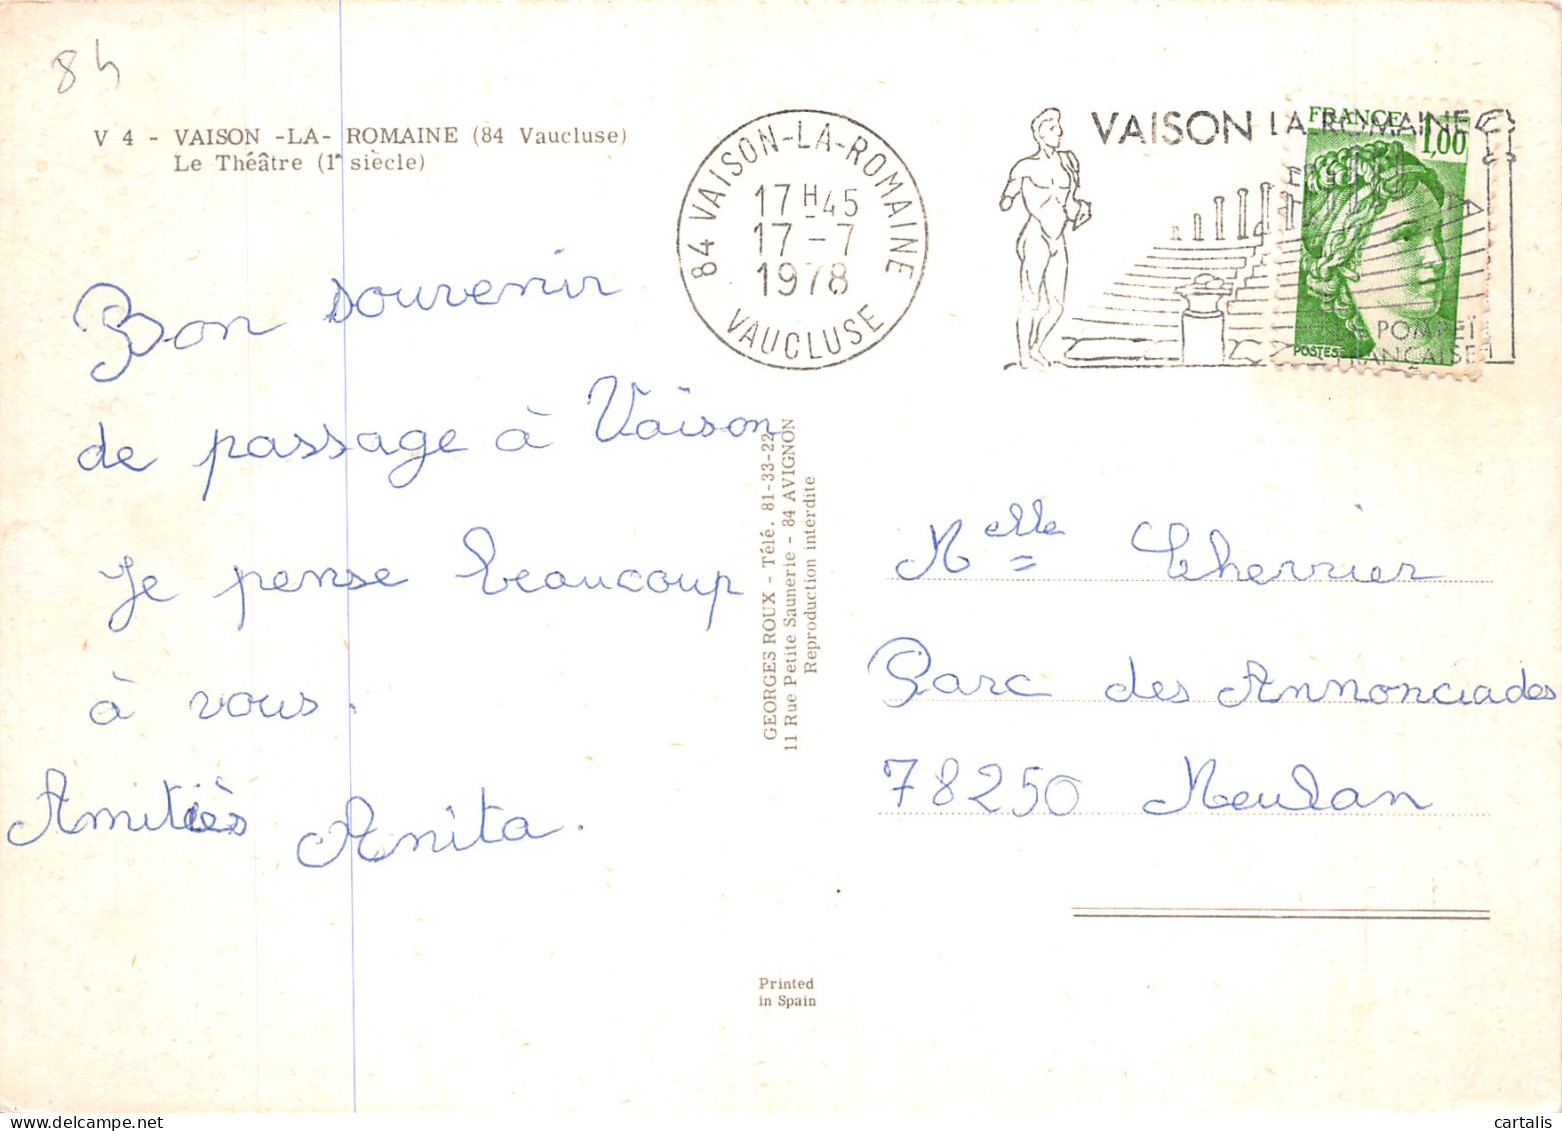 84
V 4 - VAISON -LA- ROMAINE (84 Vaucluse)
Le Théâtre (1e siècle)
84 VAISON-LA-ROMAINE
17 H 45
17 - 7
1978
VAUCLUSE
VAISON LA ROMAINE
POMPEÏ
FRANÇAISE
FRANCE
1,00
POSTES
Bon souvenir
de passage à Vaison
Je pense beaucoup
à vous.
Amitiés Anita.
GEORGES ROUX - Télé. 81-33-22
11 Rue Petite Saunerie - 84 AVIGNON
Reproduction interdite
Melle Cherrier
Parc des Annonciades
78250 Meulan
Printed
in Spain
cartalis